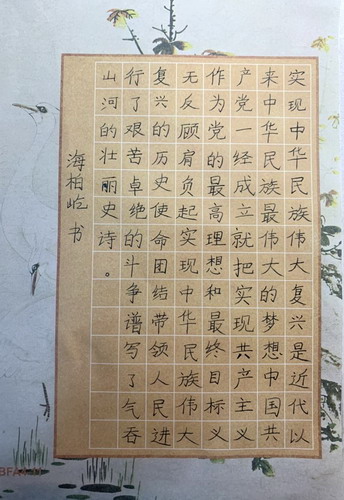 实现中华民族伟大复兴是近代以
来中华民族最伟大的梦想中国共
产党一经成立就把实现共产主义
作为党的最高理想和最终目标义
无反顾肩负起实现中华民族伟大
复兴的历史使命团结带领人民进
行了艰苦卓绝的斗争谱写了气吞
山河的壮丽史诗。
海柏屹书